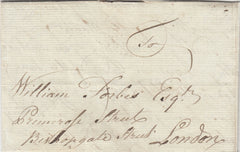 To
William Forbes Esqr.
Primrose Street
Bishopgate Street London